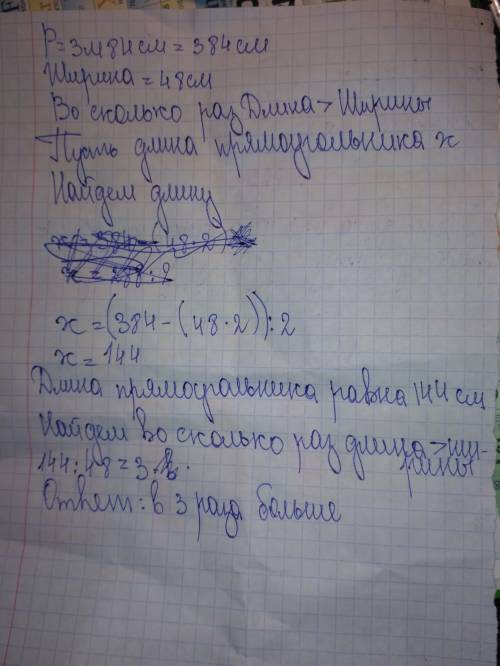 P=3м84см=384см
Ширина=48см
Во сколько раз Длина>Ширины
Пусть длина прямоугольника x
Найдем длину
x=(384-(48·2)):2
x=144
Длина прямоугольника равна 144 см
Найдем во сколько раз длина>ши-
рины
144:48=3
Ответ: в 3 раза больше